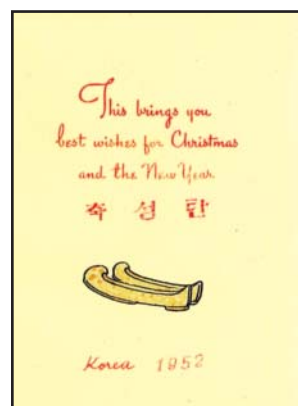 This brings you
best wishes for Christmas
and the New Year
축 성 탄
Korea 1952